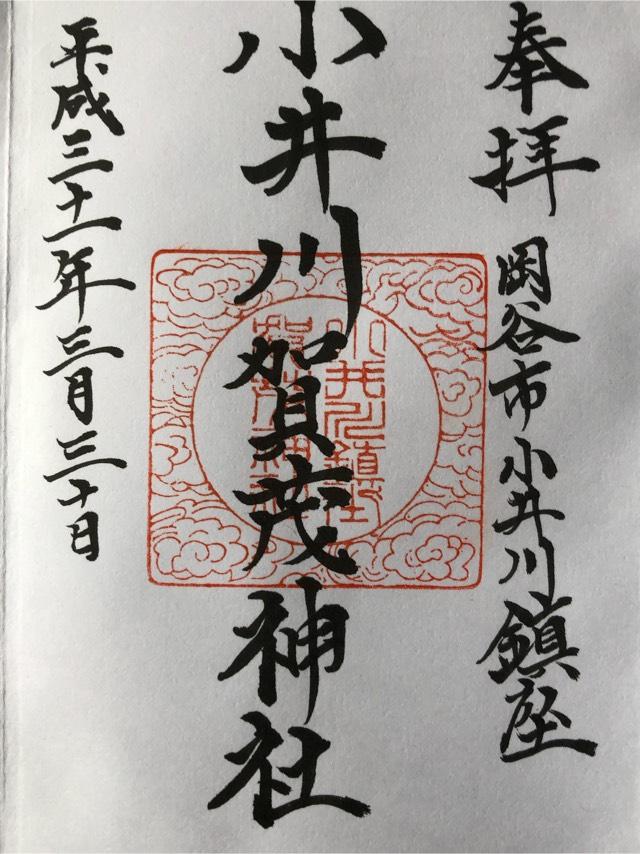 奉拝
岡谷市小井川鎮座
小井川賀茂神社
小井川鎮座
賀茂神社
平成三十一年三月三十日